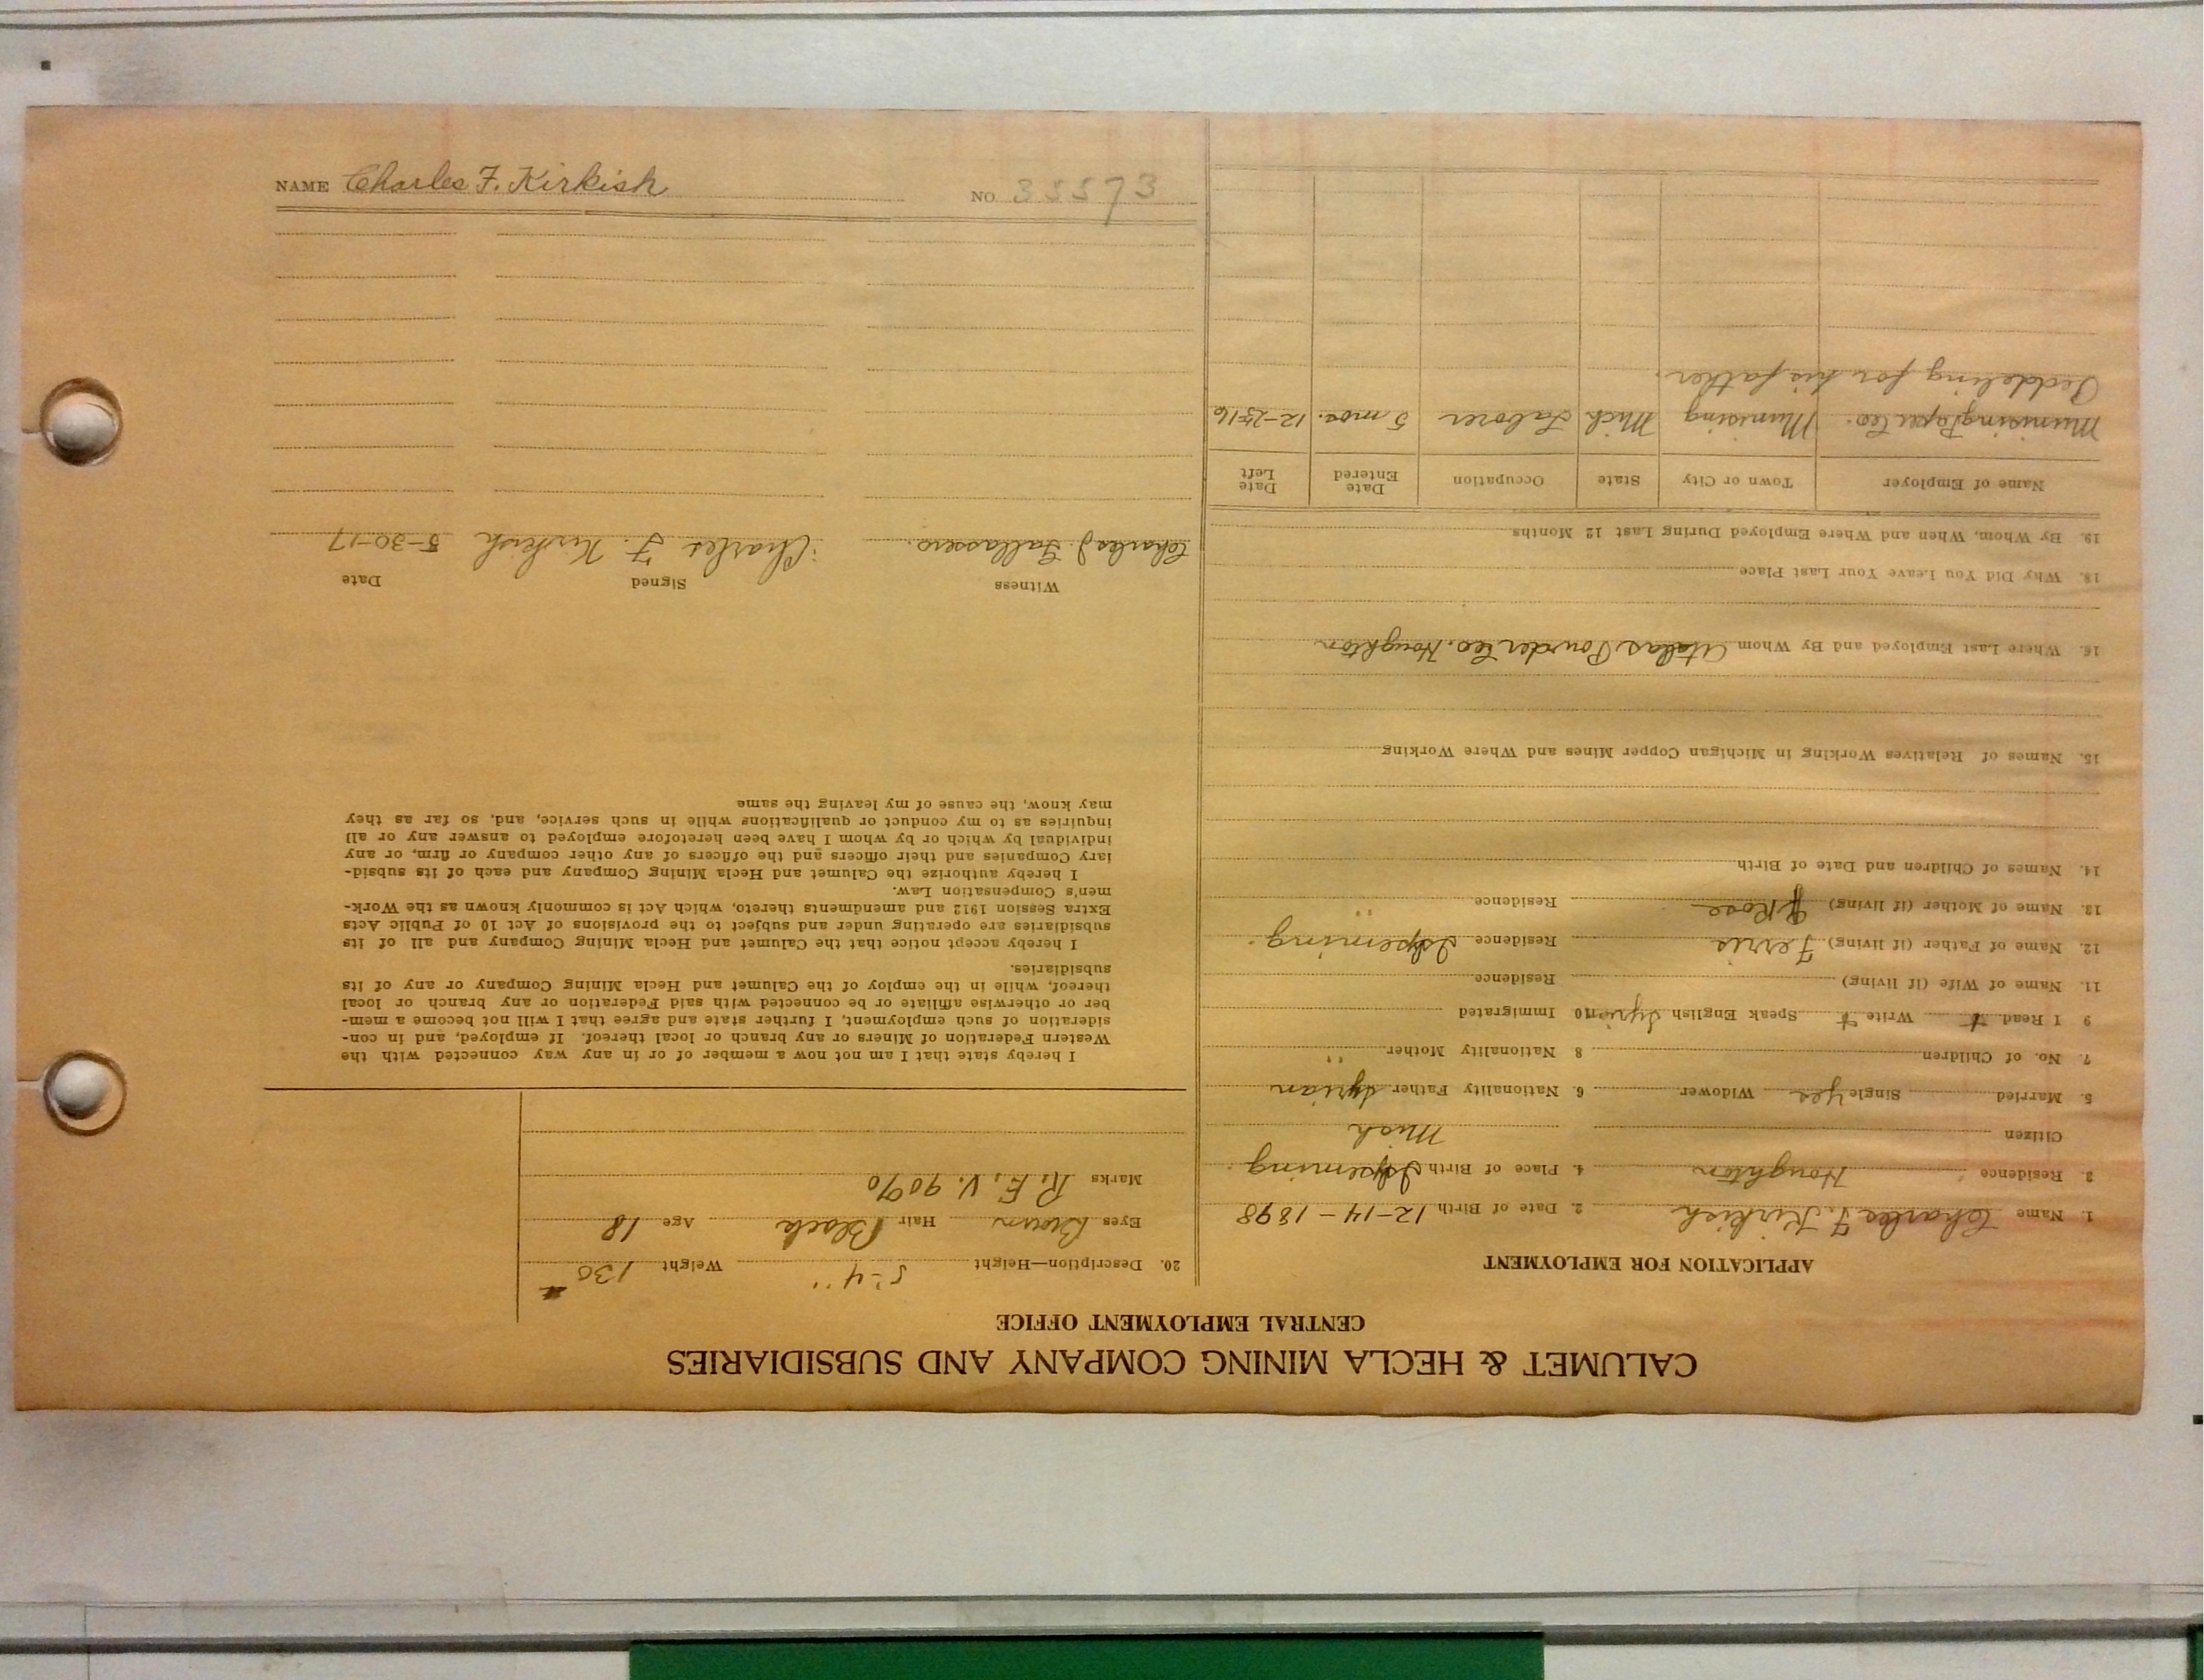 NAME Charles F. Kirkish NO. 35573
CALUMET & HECLA MINING COMPANY AND SUBSIDIARIES
CENTRAL EMPLOYMENT OFFICE
APPLICATION FOR EMPLOYMENT
1. Name Charles F. Kirkish 2. Date of Birth 12-14-1898
3. Residence Houghton 4. Place of Birth Ishpeming
Citizen Mich
5. Married Single Yes Widower 6. Nationality Father Syrian
7. No. of Children 8 Nationality Mother " "
9 I Read Write Speak English Syrian 10 Immigrated
11. Name of Wife (if living) Residence
12. Name of Father (if living) Ferris Residence Ishpeming.
13. Name of Mother (if living) Rose Residence " "
14. Names of Children and Date of Birth
15. Names of Relatives Working in Michigan Copper Mines and Where Working
16. Where Last Employed and By Whom Atlas Powder Co. Houghton
18. Why Did You Leave Your Last Place
19. By Whom, When and Where Employed During Last 12 Months
Name of Employer Town or City State Occupation Date Entered Date Left
Munising Paper Co. Munising Mich Laborer 5 mos. 12-25-16
Peddeling for his father.
20. Description—Height 5'-4" Weight 130 #
Eyes Brown Hair Black Age 18
Marks R. E. V. 90%
I hereby state that I am not now a member of or in any way connected with the
Western Federation of Miners or any branch or local thereof. If employed, and in con-
sideration of such employment, I further state and agree that I will not become a mem-
ber or otherwise affiliate or be connected with said Federation or any branch or local
thereof, while in the employ of the Calumet and Hecla Mining Company or any of its
subsidiaries.
I hereby accept notice that the Calumet and Hecla Mining Company and all of its
subsidiaries are operating under and subject to the provisions of Act 10 of Public Acts
Extra Session 1912 and amendments thereto, which Act is commonly known as the Work-
men's Compensation Law.
I hereby authorize the Calumet and Hecla Mining Company and each of its subsid-
iary Companies and their officers and the officers of any other company or firm, or any
individual by which or by whom I have been heretofore employed to answer any or all
inquiries as to my conduct or qualifications while in such service, and, so far as they
may know, the cause of my leaving the same
Witness Signed Date
Charles J. Charles F. Kirkish 5-30-17